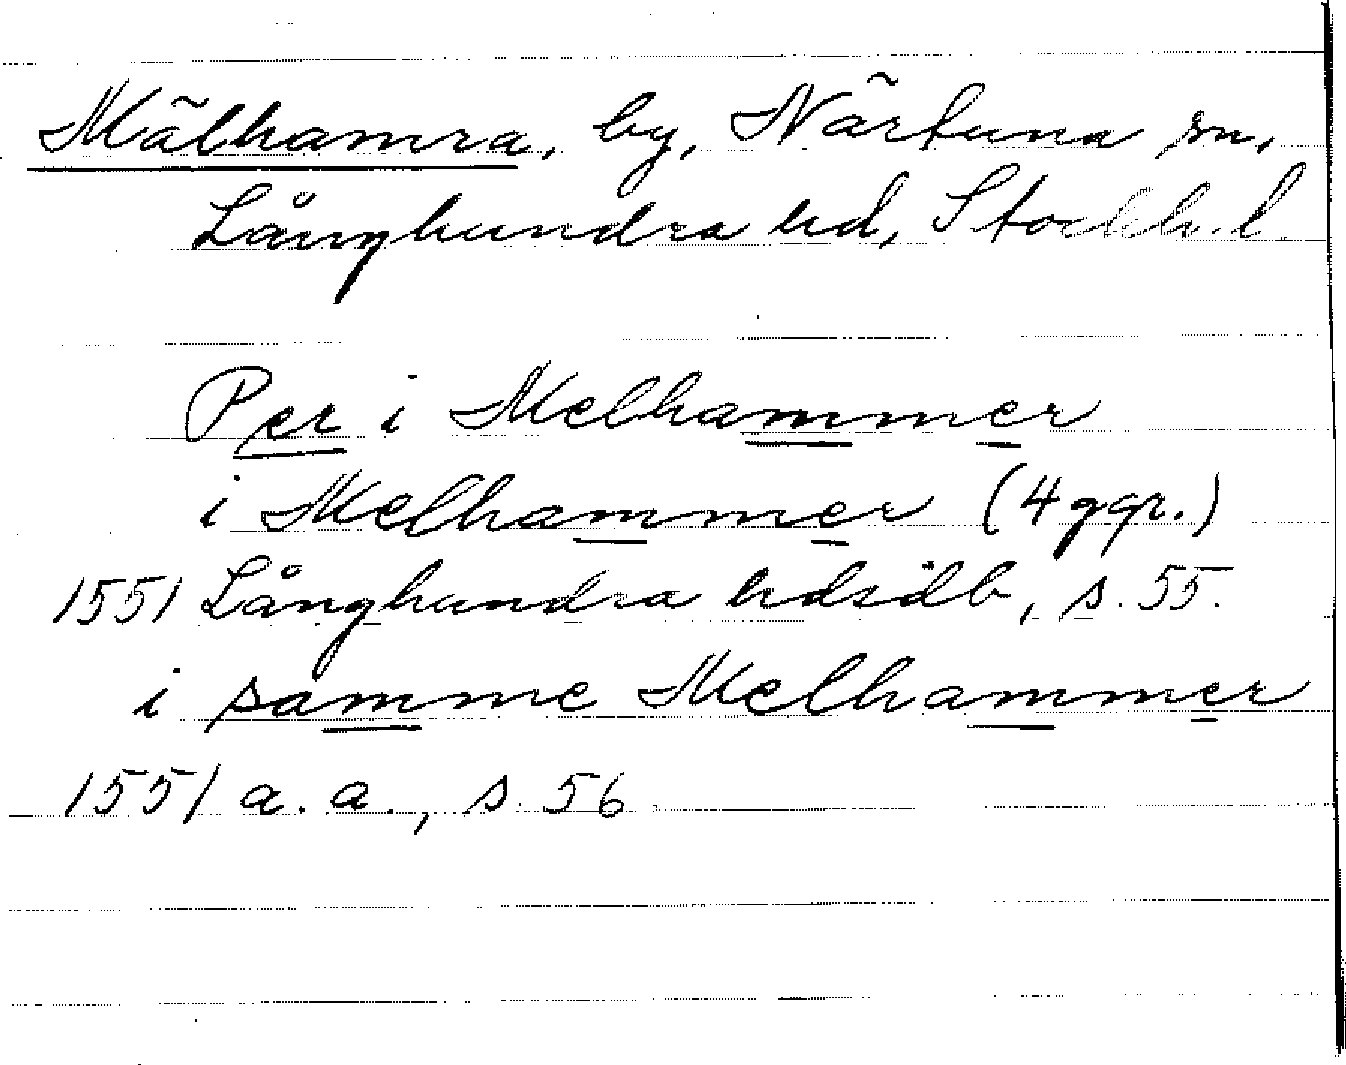 Mälhamra, by, Närtuna sn,
Långhundra hd, Stockh. l.
Per i Melhammer
i Melhammer (4 ggr.)
1551 Långhundra hdsdb, s. 55.
i samme Melhammer
1551 a. a., s. 56